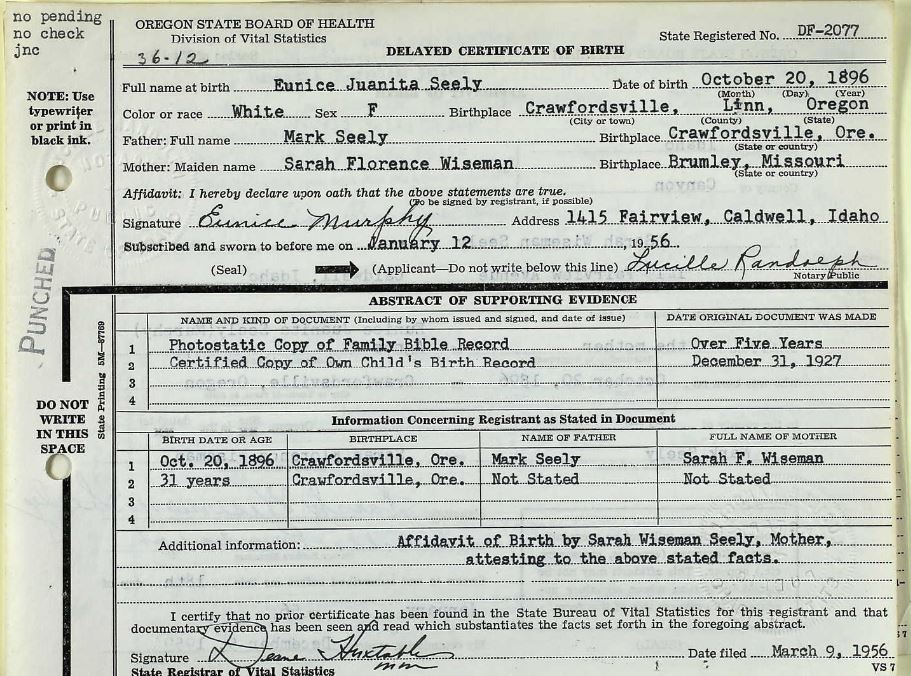 no pending
no check
jnc
OREGON STATE BOARD OF HEALTH
Division of Vital Statistics
State Registered No. DF-2077
DELAYED CERTIFICATE OF BIRTH
36-12
NOTE: Use
typewriter
or print in
black ink.
Full name at birth Eunice Juanita Seely Date of birth October 20, 1896
(Month) (Day) (Year)
Color or race White Sex F Birthplace Crawfordsville, Linn, Oregon
(City or town) (County) (State)
Father: Full name Mark Seely Birthplace Crawfordsville, Ore.
(State or country)
Mother: Maiden name Sarah Florence Wiseman Birthplace Brumley, Missouri
(State or country)
Affidavit: I hereby declare upon oath that the above statements are true.
(To be signed by registrant, if possible)
Signature Eunice Murphy Address 1415 Fairview, Caldwell, Idaho
Subscribed and sworn to before me on January 12, 1956
(Seal) (Applicant—Do not write below this line) Lucille Randolph
Notary Public
PUNCHED
State Printing 5M—87769
DO NOT
WRITE
IN THIS
SPACE
ABSTRACT OF SUPPORTING EVIDENCE
NAME AND KIND OF DOCUMENT (Including by whom issued and signed, and date of issue) DATE ORIGINAL DOCUMENT WAS MADE
1 Photostatic Copy of Family Bible Record Over Five Years
2 Certified Copy of Own Child's Birth Record December 31, 1927
3
4
Information Concerning Registrant as Stated in Document
BIRTH DATE OR AGE BIRTHPLACE NAME OF FATHER FULL NAME OF MOTHER
1 Oct. 20, 1896 Crawfordsville, Ore. Mark Seely Sarah F. Wiseman
2 31 years Crawfordsville, Ore. Not Stated Not Stated
3
4
Additional information: Affidavit of Birth by Sarah Wiseman Seely, Mother,
attesting to the above stated facts.
I certify that no prior certificate has been found in the State Bureau of Vital Statistics for this registrant and that
documentary evidence has been seen and read which substantiates the facts set forth in the foregoing abstract.
Signature Huxtable Date filed March 9, 1956
State Registrar of Vital Statistics
VS 7